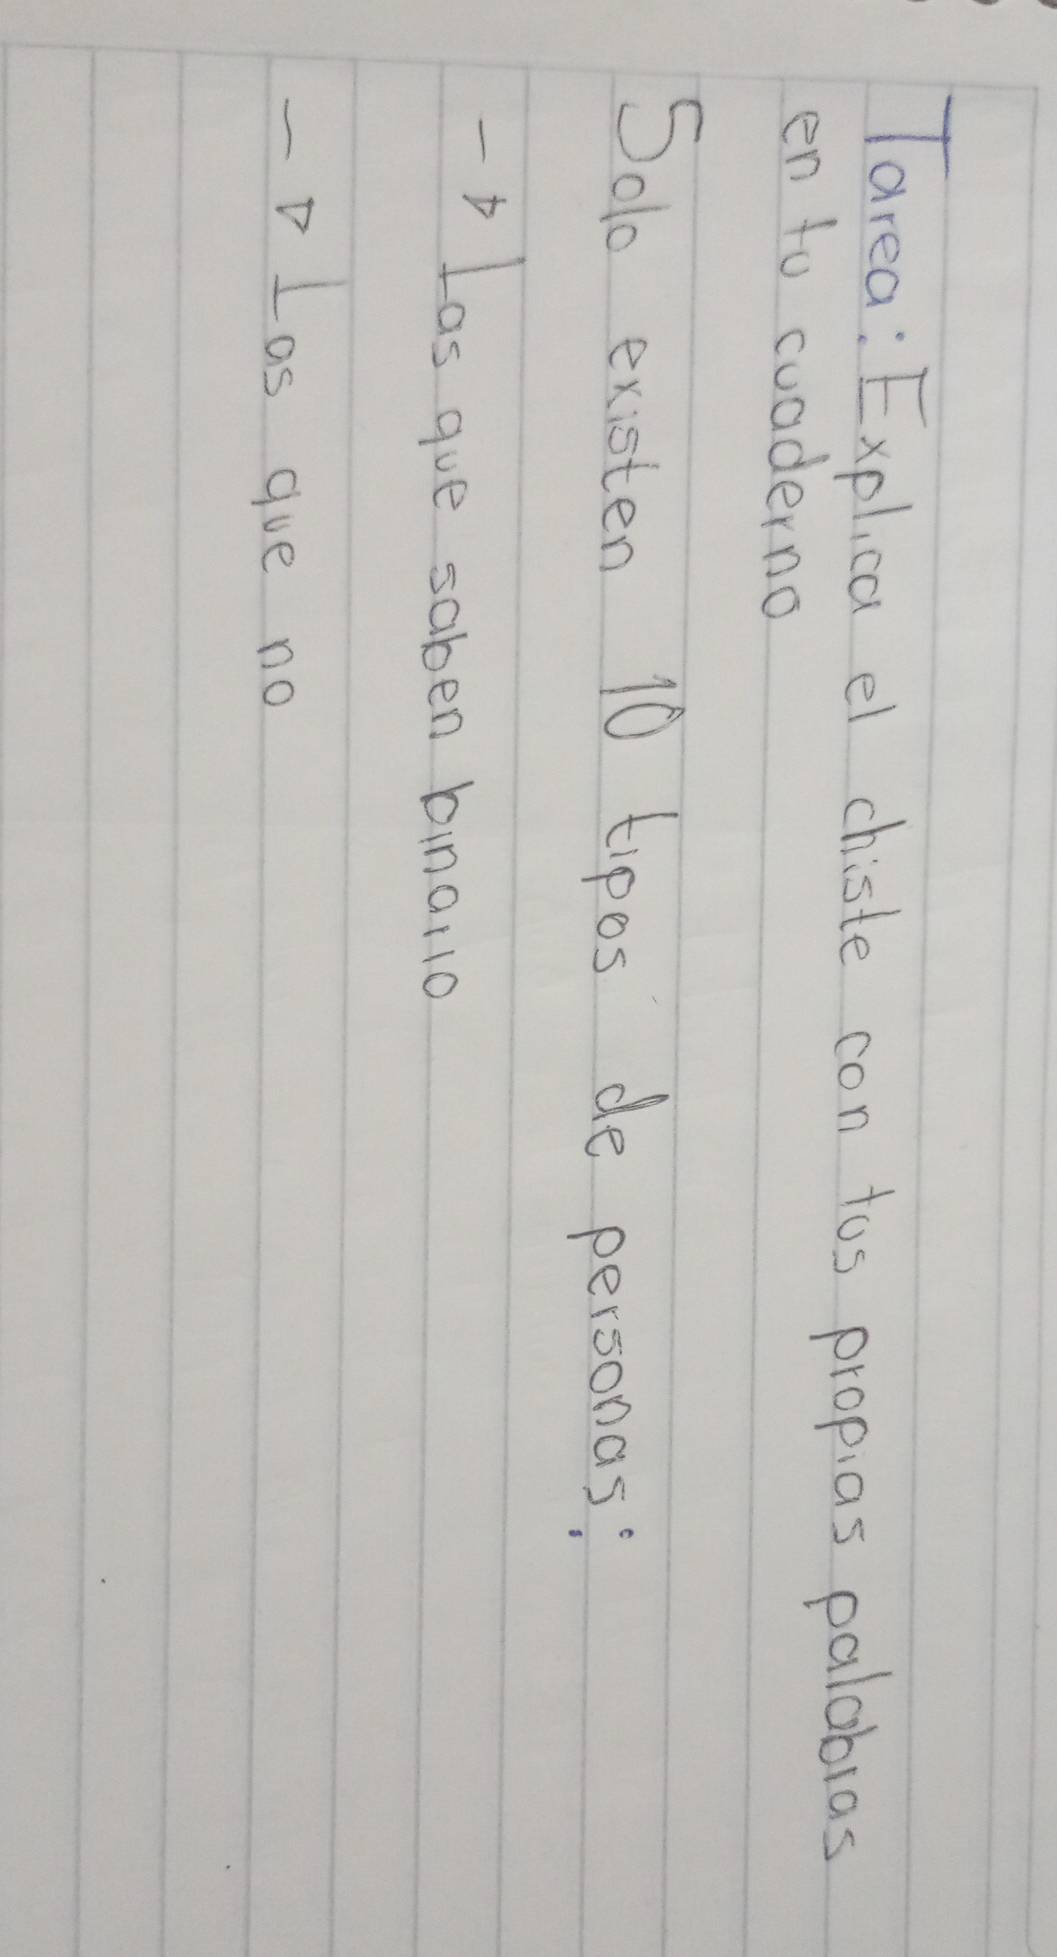 Tarea: Explica el chiste con tus propias palabras
en tu cuaderno
Solo existen 10 tipos de personas:
-> Las que saben binario
-> Las que no